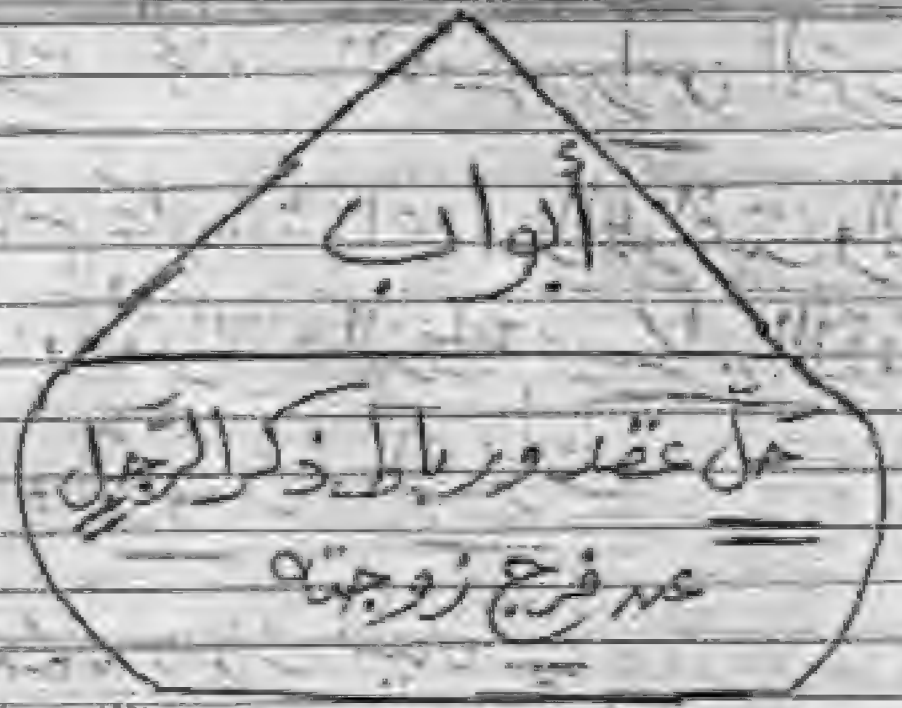 أبواب
حل عقد ورباط ذكر الرجل
عن فرج زوجته